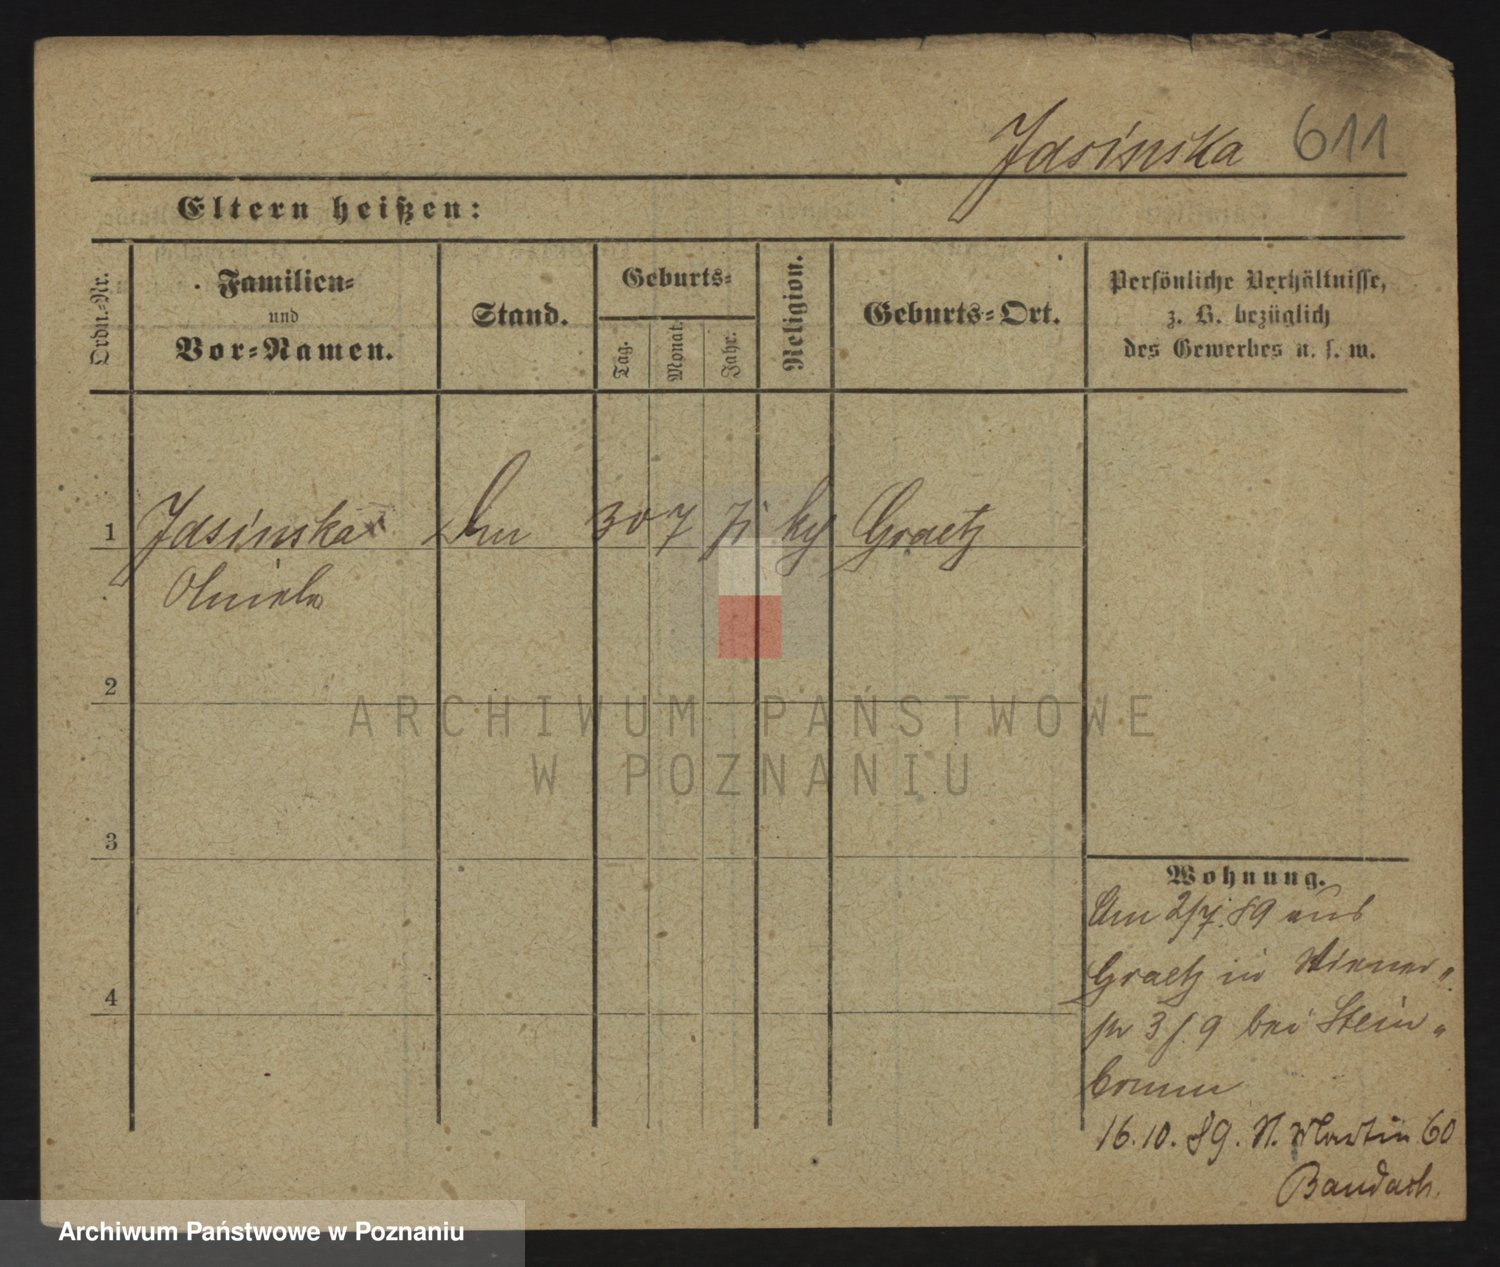 Jasinska 611
Eltern heißen:
Ordn.-Nr.
Familien-
und
Vor-Namen.
Stand.
Geburts-
Tag.
Monat.
Jahr.
Religion.
Geburts-Ort.
Persönliche Verhältnisse,
z. B. bezüglich
des Gewerbes u. s. w.
1 Jasinska 30 7 Graetz
2
3
4
ARCHIWUM PAŃSTWOWE
W POZNANIU
Wohnung.
Am 2/7. 89 aus
Graetz in Wiener-
3 9 bei Stein-
born
16.10.89. St. Martin 60
Bandach.
Archiwum Państwowe w Poznaniu